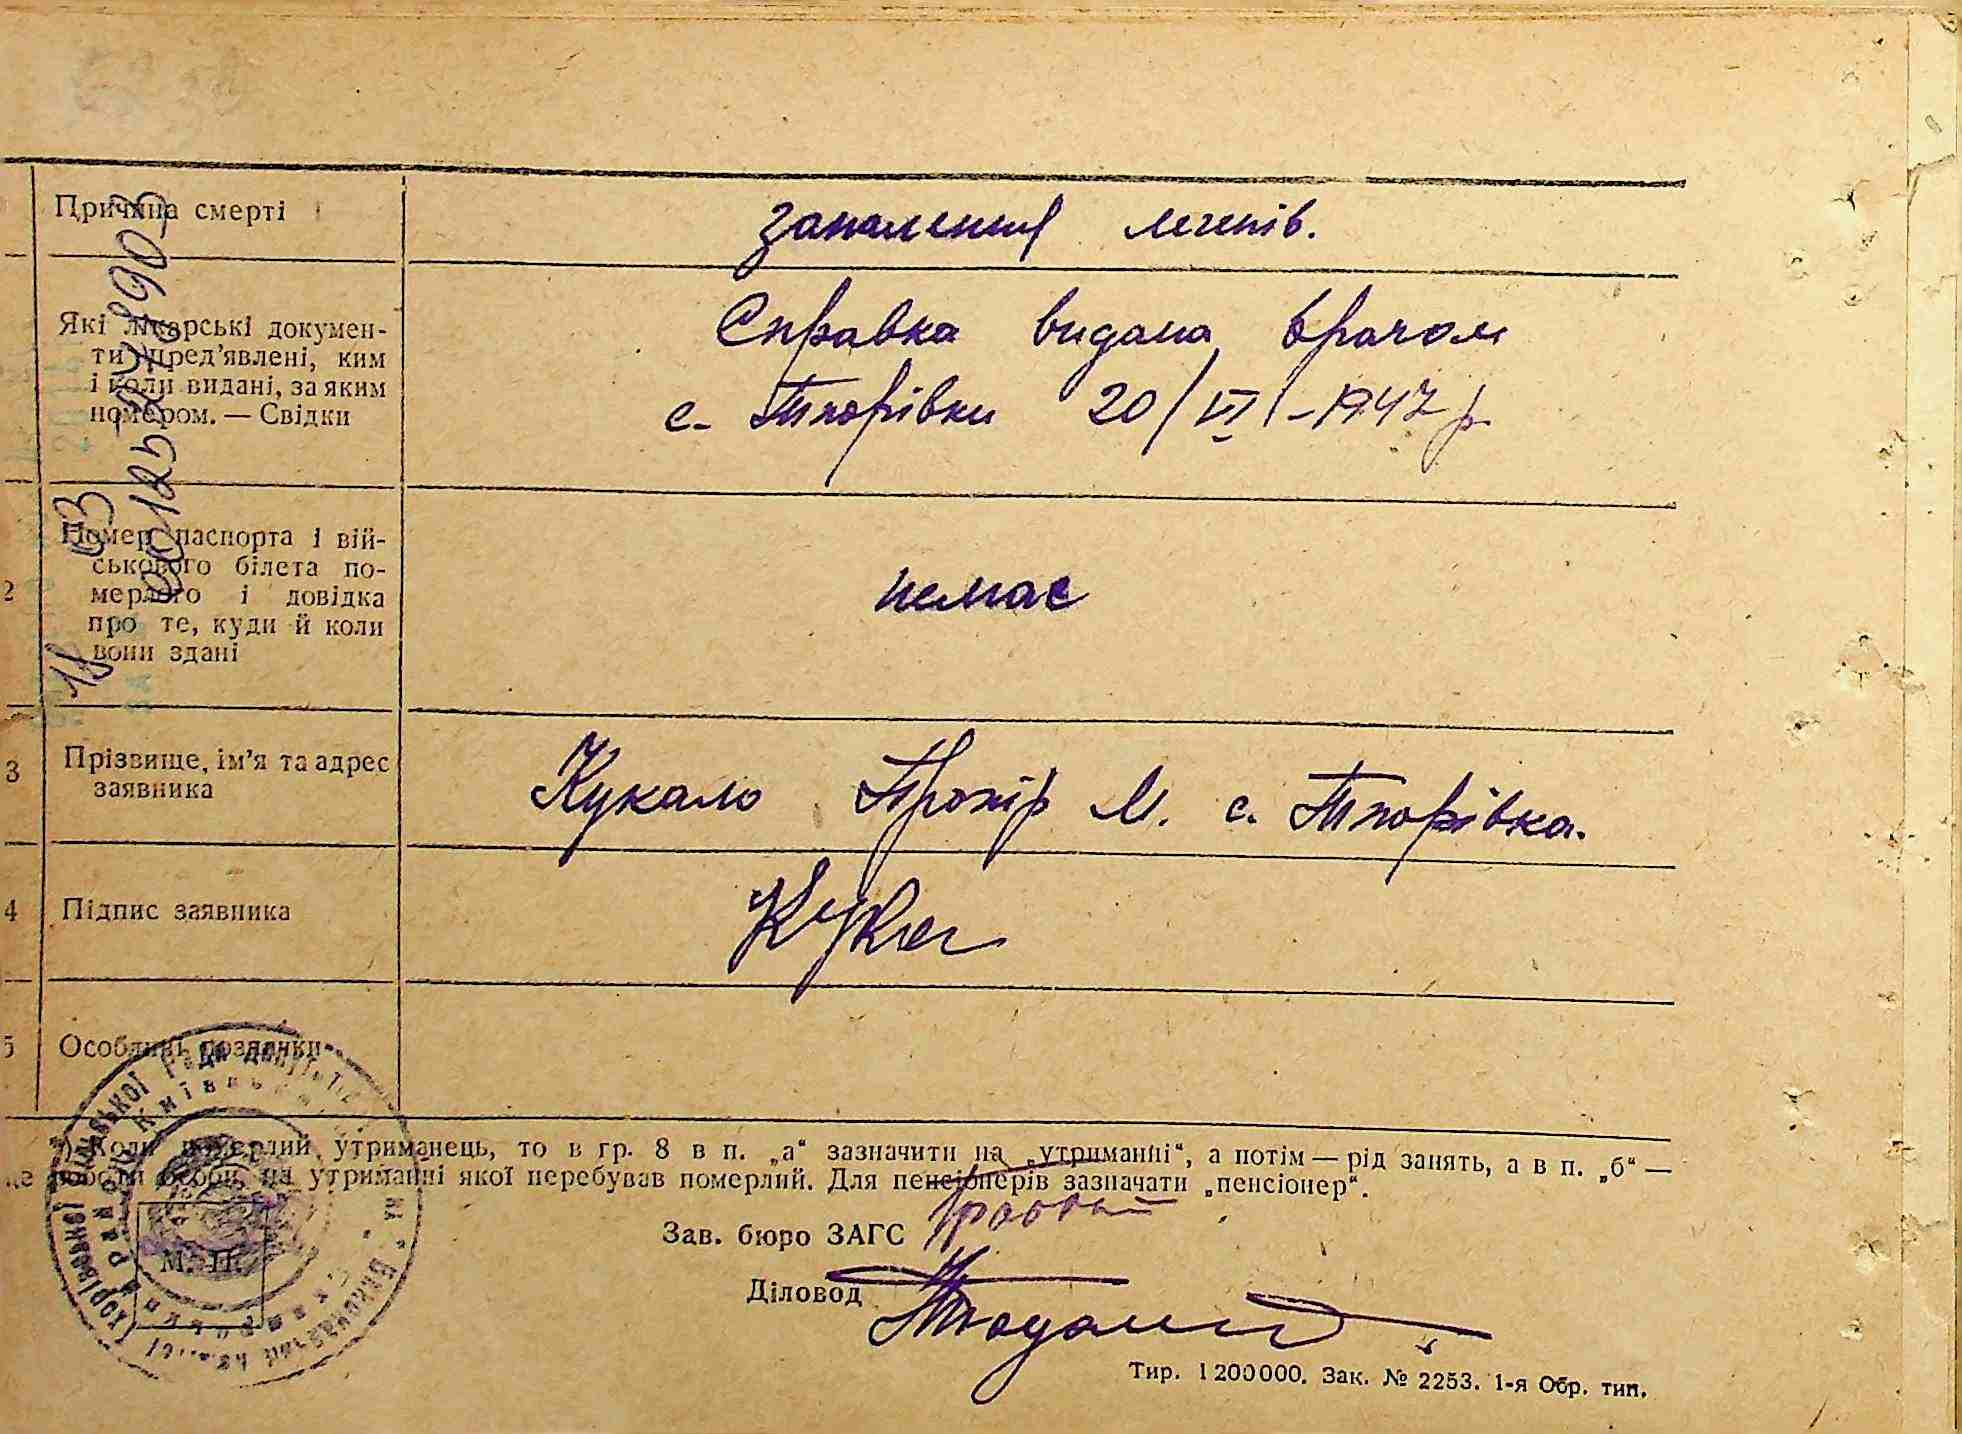 Причина смерті
запалення легенів.
Які лікарські докумен-
ти пред'явлені, ким
і коли видані, за яким
номером. — Свідки
Справка видана врачом
с. Тхорівки 20/VI-1947 р
2
Номер паспорта і вій-
ськового білета по-
мерлого і довідка
про те, куди й коли
вони здані
немає
3
Прізвище, ім'я та адрес
заявника
Кукало Прохір М. с. Тхорівка.
4
Підпис заявника
5
Особливі позначки
*) Коли померлий утриманець, то в гр. 8 в п. „а“ зазначити на „утриманні“, а потім — рід занять, а в п. „б“ —
це роботи особи, на утриманні якої перебував померлий. Для пенсіонерів зазначати „пенсіонер“.
Зав. бюро ЗАГС
Діловод
М. П.
Тир. 1200000. Зак. № 2253. 1-я Обр. тип.